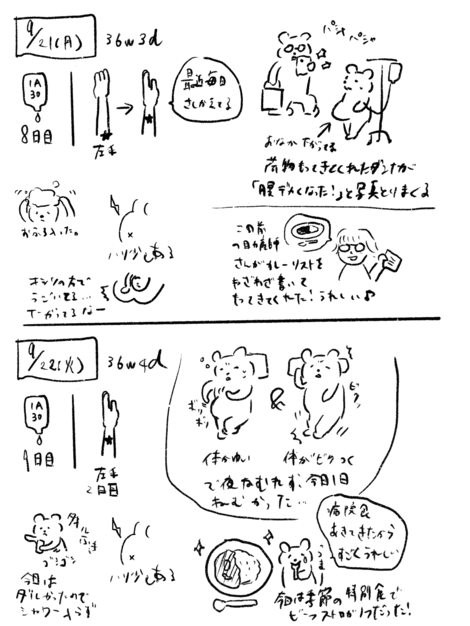 9/21(月) 36w3d
1A
30
8日目
左手
最近毎日
さしかえてる
パシャ パシャ
おなか下がってる
荷物もってきてくれたダンナが
「腹デカくなった!」と写真とりまくる
おふろ入った。
ハリ少しある
ホジリの方で
うごいてる…
下がってるなー
この前
の助産師
さんがカレーリストを
わざわざ書いて
もってきてくれた!うれしい♪
9/22(火) 36w4d
1A
30
9日目
左手
2日目
ボリ
ボリ
体かゆい
&
ビク
体がビクつく
で夜ねむれず、今日1日
ねむかった…
ダルほほ
ゴシゴシ
今日は
ダルかったので
シャワー入らず
ハリ少しある
病院食
あきてきたから
すごくうれしい
うま
今日は季節の特別食で
ビーフストロガノフだった!